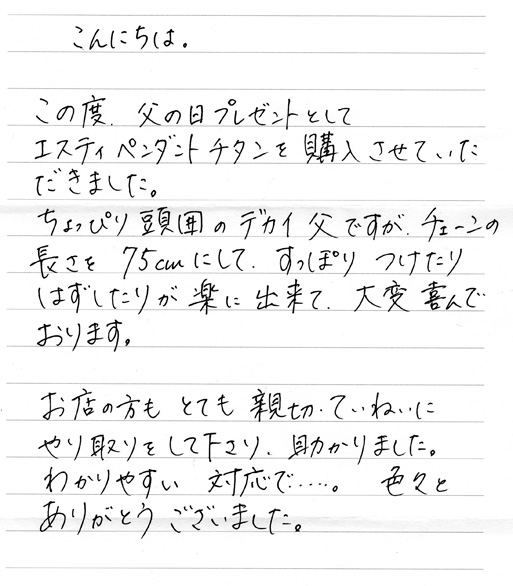 こんにちは。
この度、父の日プレゼントとして
エスティペンダントチタンを購入させていた
だきました。
ちょっぴり頭囲のデカイ父ですが、チェーンの
長さを75cmにして、すっぽりつけたり
はずしたりが楽に出来て、大変喜んで
おります。
お店の方もとても親切・ていねいに
やり取りをして下さり、助かりました。
わかりやすい対応で…。色々と
ありがとうございました。